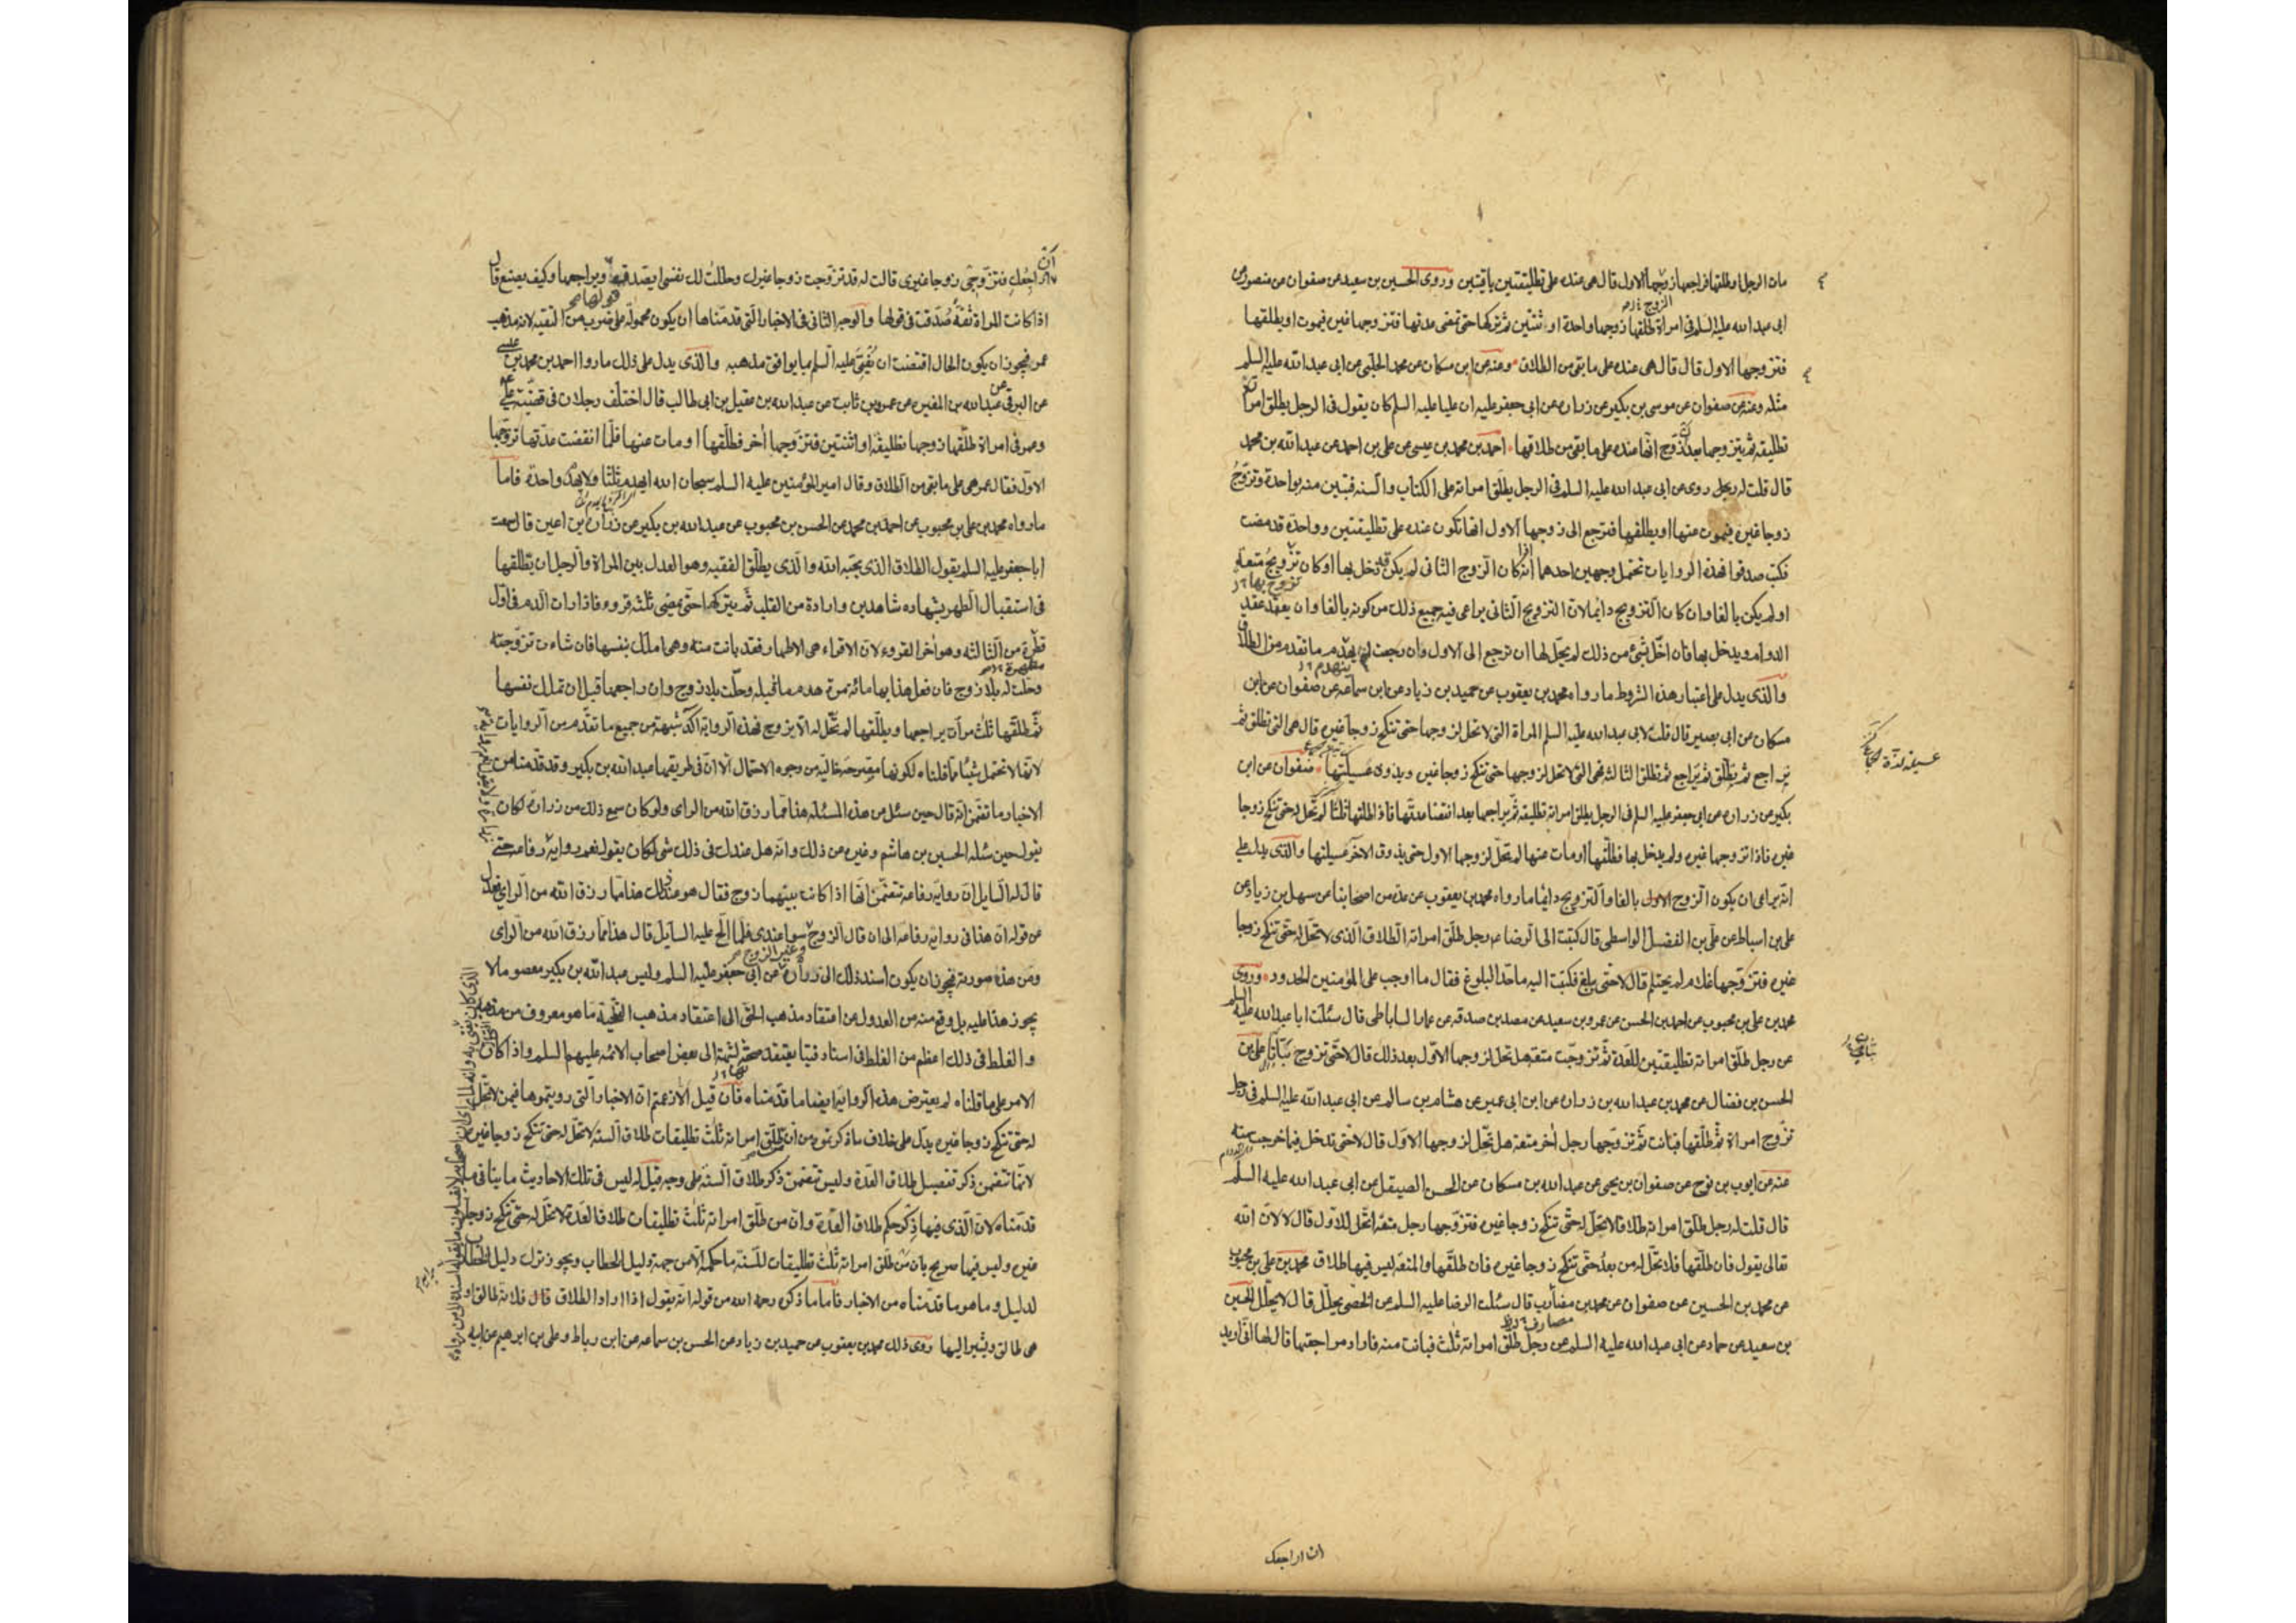 مات الرجل او طلقها فراجعها زوجها الاول قال هى عنده على تطليقتين باقيتين وروى الحسين بن سعيد عن صفوان عن منصور عن
ابى عبد الله عليه السلم فى امراة طلقها زوجها واحدة او اثنتين ثم تركها حتى تمضى عدتها فتزوجها غيره فيموت او يطلقها
فتزوجها الاول قال قال هى عنده على ما بقى من الطلاق وعنه عن ابن مسكان عن محمد الحلبى عن ابى عبد الله عليه السلم
مثله وعنه عن صفوان عن موسى بن بكير عن زراره عن ابى جعفر عليه ان عليا عليه السلم كان يقول فى الرجل يطلق امراته
تطليقه ثم يتزوجها بعد زوج انها عنده على ما بقى من طلاقها احمد بن محمد بن عيسى عن على بن احمد عن عبد الله بن محمد
قال قلت له رجل روى عن ابى عبد الله عليه السلم فى الرجل يطلق امراته على الكتاب والسنه فتبين منه بواحدة وتزوج
زوجا غيره فيموت عنها او يطلقها فترجع الى زوجها الاول انها تكون عنده على تطليقتين وواحدة قد مضت
فكتب صدقوا فهذه الروايات تحتمل وجهين احدهما ان كان الزوج الثانى لم يكن قد دخل بها او كان تزويج متعة
او لم يكن بالغا وان كان التزويج دايما لان التزويج الثانى يراعى فيه جميع ذلك من كونه بالغا وان يعقد عقد
الدوام ويدخل بها فان اخل بشئ من ذلك لم يحل لها ان ترجع الى الاول وان رجعت لم يهدم ما تقدم من الطلاق
والذى يدل على اعتبار هذه الشروط ما رواه محمد بن يعقوب عن حميد بن زياد عن ابن سماعه عن صفوان عن ابن
مسكان عن ابى بصير قال قلت لابى عبد الله عليه السلم المراة التى لا تحل لزوجها حتى تنكح زوجا غيره قال هى التى تطلق ثم
يراجع ثم يطلق ثم يراجع ثم تطلق الثالثه فهى التى لا تحل لزوجها حتى تنكح زوجا غيره ويذوق عسيلتها صفوان عن ابن
بكير عن زراره عن ابى جعفر عليه السلم فى الرجل يطلق امراته تطليقه ثم يراجعها بعد انقضا عدتها فاذا طلقها ثلثا لم تحل له حتى تنكح زوجا
غيره فاذا تزوجها غيره ولم يدخل بها فطلقها او مات عنها لم تحل لزوجها الاول حتى يذوق الاخر عسيلتها والذى يدل على
انه يراعى ان يكون الزوج الاول بالغا والتزويج دايما ما رواه محمد بن يعقوب عن عدة من اصحابنا عن سهل بن زياد عن
على بن اسباط عن على بن الفضل الواسطى قال كتبت الى الرضا عم رجل طلق امراته الطلاق الذى لا تحل له حتى تنكح زوجا
غيره فتزوجها غلام لم يحتلم قال لا حتى يبلغ فكتبت اليه ما حد البلوغ فقال ما اوجب على المؤمنين الحدود وروى
محمد بن على بن محبوب عن احمد بن الحسن عن عمرو بن سعيد عن مصدق بن صدقه عن عمار الساباطى قال سئلت ابا عبد الله عليه السلم
عن رجل طلق امراته تطليقتين للعدة ثم تزوجت متعة هل تحل لزوجها الاول بعد ذلك قال لا حتى تزوج بتاتا على بن
الحسن بن فضال عن محمد بن عبد الله بن زراره عن ابن ابى عمير عن هشام بن سالم عن ابى عبد الله عليه السلم فى رجل
تزوج امراة ثم طلقها فبانت ثم تزوجها رجل اخر متعة هل تحل لزوجها الاول قال لا حتى تدخل فيما خرجت منه
عنه عن ايوب بن نوح عن صفوان بن يحيى عن عبد الله بن مسكان عن الحسن الصيقل عن ابى عبد الله عليه السلم
قال قلت له رجل طلق امراته طلاقا لا تحل له حتى تنكح زوجا غيره فتزوجها رجل متعة اتحل للاول قال لا لان الله
تعالى يقول فان طلقها فلا تحل له من بعد حتى تنكح زوجا غيره فان طلقها والمتعه ليس فيها طلاق محمد بن على بن محبوب
عن محمد بن الحسين عن صفوان عن محمد بن مضارب قال سئلت الرضا عليه السلم عن الخصى يحلل قال لا يحلل الحسين
بن سعيد عن حماد عن ابى عبد الله عليه السلم عن رجل طلق امراته ثلث فبانت منه فاراد مراجعتها قال لها انى اريد
ان اراجعك
ان اراجعك فتزوجى زوجا غيرى قالت له قد تزوجت زوجا غيرك وحللت لك نفسى ايصدقها ويراجعها وكيف يصنع قال
اذا كانت المراة ثقة صدقت فى قولها والوجه الثانى فى الاخبار التى قدمناها ان يكون محمولة على ضرب من التقيه لانه مذهب
عمر فيجوز ان يكون الحال اقتضت ان يفتى عليه السلم بما يوافق مذهبه والذى يدل على ذلك ما رواه احمد بن محمد بن عيسى
عن البرقى عن عبد الله بن المغيره عن عمرو بن ثابت عن عبد الله بن عقيل بن ابى طالب قال اختلف رجلان فى قضية على
وعمر فى امراة طلقها زوجها تطليقة او اثنتين فتزوجها اخر فطلقها او مات عنها فلما انقضت عدتها تزوجها
الاول فقال عمر هى على ما بقى من الطلاق وقال امير المؤمنين عليه السلم سبحان الله ايهدم ثلثا ولا يهدم واحدة فاما
ما رواه محمد بن على بن محبوب عن احمد بن محمد عن الحسن بن محبوب عن عبد الله بن بكير عن زراره بن اعين قال سمعت
ابا جعفر عليه السلم يقول الطلاق الذى يحبه الله والذى يطلق الفقيه وهو العدل بين المراة والرجل ان يطلقها
فى استقبال الطهر بشهادة شاهدين وارادة من القلب ثم يتركها حتى يمضى ثلثه قروء فاذا رات الدم فى اول
قطرة من الثالثه وهو اخر القروء لان الاقراء هى الاطهار فقد بانت منه وهى املك بنفسها فان شاءت تزوجته
وحلت له بلا زوج فان فعل هذا بها مائة مرة هدم ما قبله وحلت بلا زوج وان راجعها قبل ان تملك نفسها
ثم طلقها ثلث مرات يراجعها ويطلقها لم تحل له الا بزوج فهذه الرواية اكد شبهة من جميع ما تقدم من الروايات
لانها لا تحتمل شيئا مما قلناه لكونها مصرحة خالية من وجوه الاحتمال الا ان فى طريقها عبد الله بن بكير وقد قدمنا من
الاخبار ما تضمن انه قال حين سئل عن هذه المسئله هذا مما رزق الله من الراى ولو كان سمع ذلك من زرارة لكان
يقول حين سئله الحسين بن هاشم وغيره عن ذلك وانه هل عندك فى ذلك شى لكان يقول نعم رواية رفاعه حتى
قال له السايل ان رواية رفاعه تتضمن انها اذا كانت بينهما زوج فقال هو عند ذلك هذا مما رزق الله من الراى فعدل
عن قوله ان هذا فى رواية رفاعة الى ان قال الزوج سواء عندى فلما الح عليه السايل قال هذا مما رزق الله من الراى
ومن هذه صورته فيجوز ان يكون اسند ذلك الى زرارة عن ابى جعفر عليه السلم وليس عبد الله بن بكير معصوما لا
يجوز هذا عليه بل وقع منه من العدول عن اعتقاد مذهب الحق الى اعتقاد مذهب الفطحية ما هو معروف من مذهبه
والغلط فى ذلك اعظم من الغلط فى اسناد فتيا يعتقد صحته لشبهة الى بعض اصحاب الائمه عليهم السلم واذا كان
الامر على ما قلناه لم يعترض هذه الرواية ايضا ما قدمناه فان قيل الا زعمتم ان الاخبار التى رويتموها فيمن لا تحل
له حتى تنكح زوجا غيره يدل على خلاف ما ذكرتموه من ان من طلق امراته ثلث تطليقات طلاق السنه لا تحل له حتى تنكح زوجا غيره
لانها تتضمن ذكر تفصيل طلاق العدة وليس تتضمن ذكر طلاق السنه على وجه قيل له ليس فى تلك الاحاديث ما ينافى ما
قدمناه لان الذى فيها ذكر حكم طلاق العدة وان من طلق امراته ثلث تطليقات طلاقا لعدة لا تحل له حتى تنكح زوجا
غيره وليس فيها صريح بان من طلق امراته ثلث تطليقات للسنة ما حكمه الا من جهة دليل الخطاب ويجوز ترك دليل الخطاب
لدليل وما هو ما قدمناه من الاخبار فاما ما ذكره رحمه الله من قوله انه يقول اذا اراد الطلاق قال فلانة طالق او
هى طالق ويشير اليها روى ذلك محمد بن يعقوب عن حميد بن زياد عن الحسن بن سماعه عن ابن رباط وعلى بن ابرهيم عن ابيه